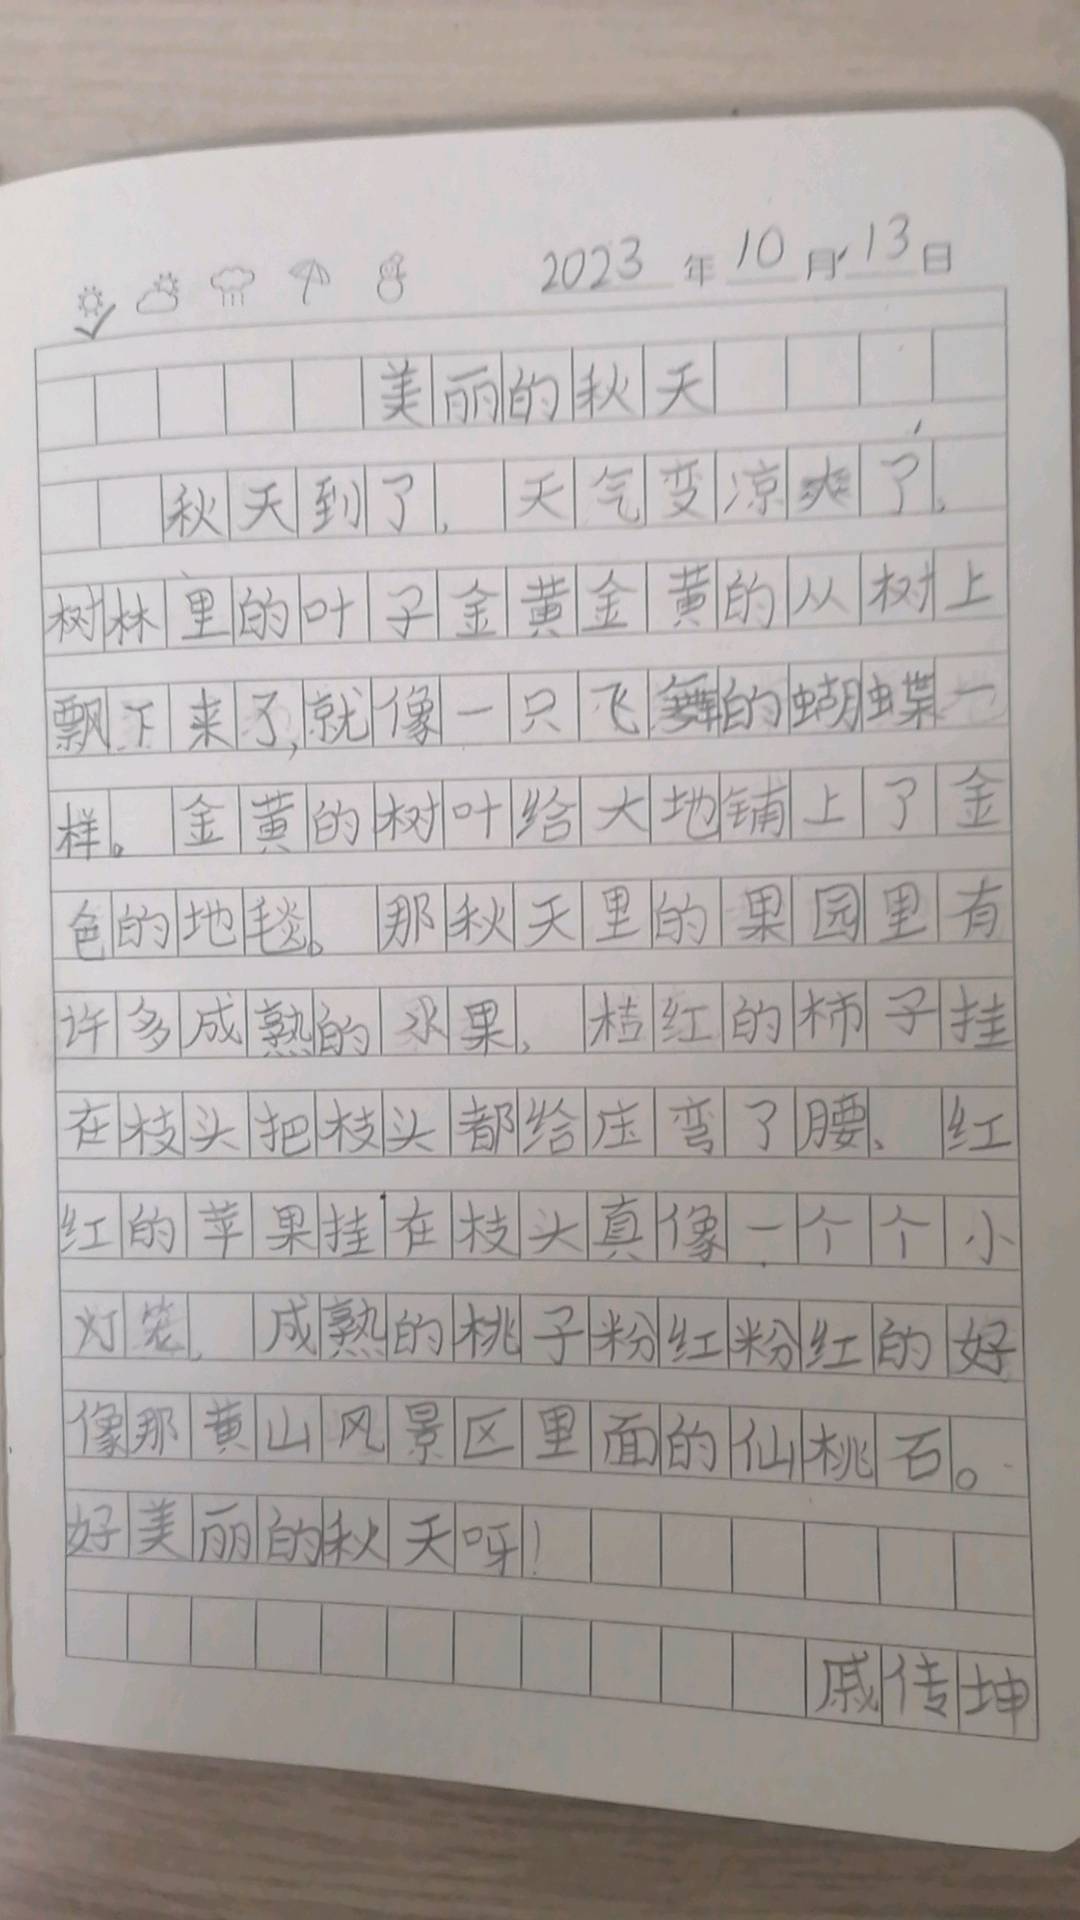 2023 年 10 月 13 日
美丽的秋天
秋天到了，天气变凉爽了，
树林里的叶子金黄金黄的从树上
飘下来了,就像一只飞舞的蝴蝶一
样。金黄的树叶给大地铺上了金
色的地毯。那秋天里的果园里有
许多成熟的水果，桔红的柿子挂
在枝头把枝头都给压弯了腰、红
红的苹果挂在枝头真像一个个小
灯笼，成熟的桃子粉红粉红的好
像那黄山风景区里面的仙桃石。
好美丽的秋天呀！
戚传坤